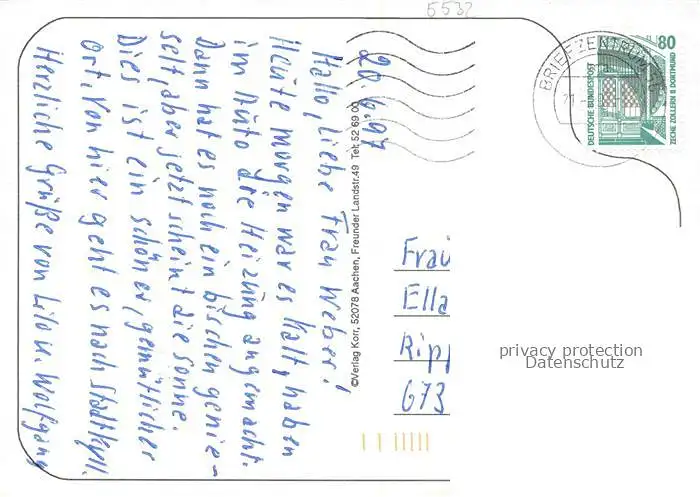 5532
20.6.97
Hallo, liebe Frau Weber!
Heute morgen war es kalt, haben
im Auto die Heizung angemacht.
Dann hat es noch ein bischen genie-
selt, aber jetzt scheint die Sonne.
Dies ist ein schöner, gemütlicher
Ort. Von hier geht es nach Stadtkyll.
Herzliche Grüße von Lilo u. Wolfgang
©Verlag Korr, 52078 Aachen, Freunder Landstr.49 Tel: 52 69 00
BRIEFZENTRUM
80
DEUTSCHE BUNDESPOST
ZECHE ZOLLERN II DORTMUND
Frau
Ella
Ripp
673
privacy protection
Datenschutz